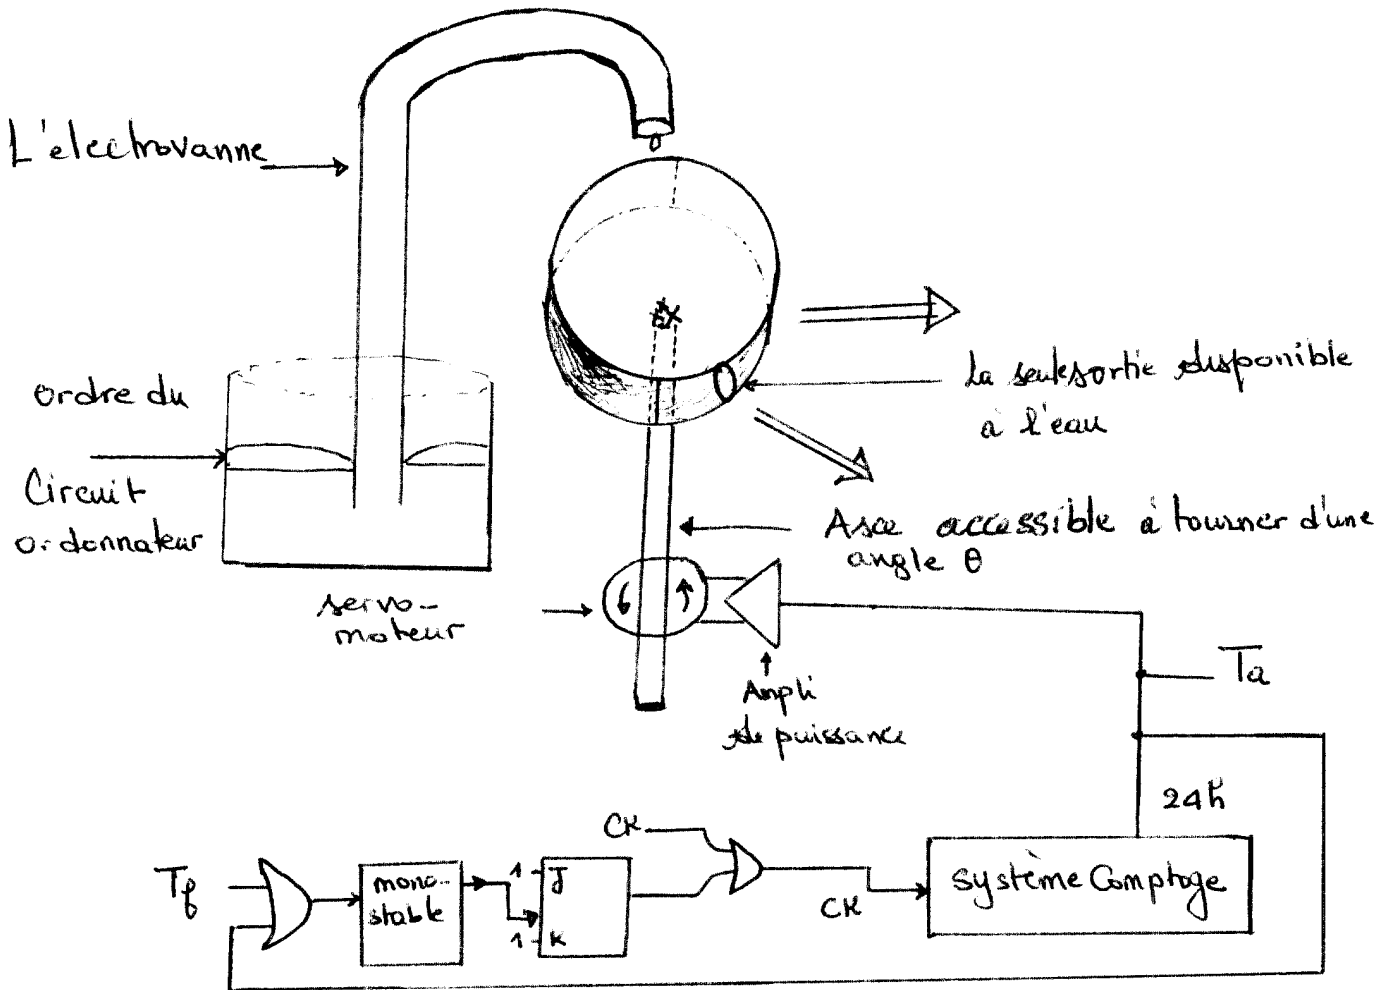 L'électrovanne
ordre du
Circuit
ordonnateur
La seule sortie disponible
à l'eau
Asce accessible à tourner d'une
angle θ
servo-
moteur
Ampli
de puissance
Ta
24h
CK
Tf
mono-
stable
1 J
1 K
CK
système Comptage